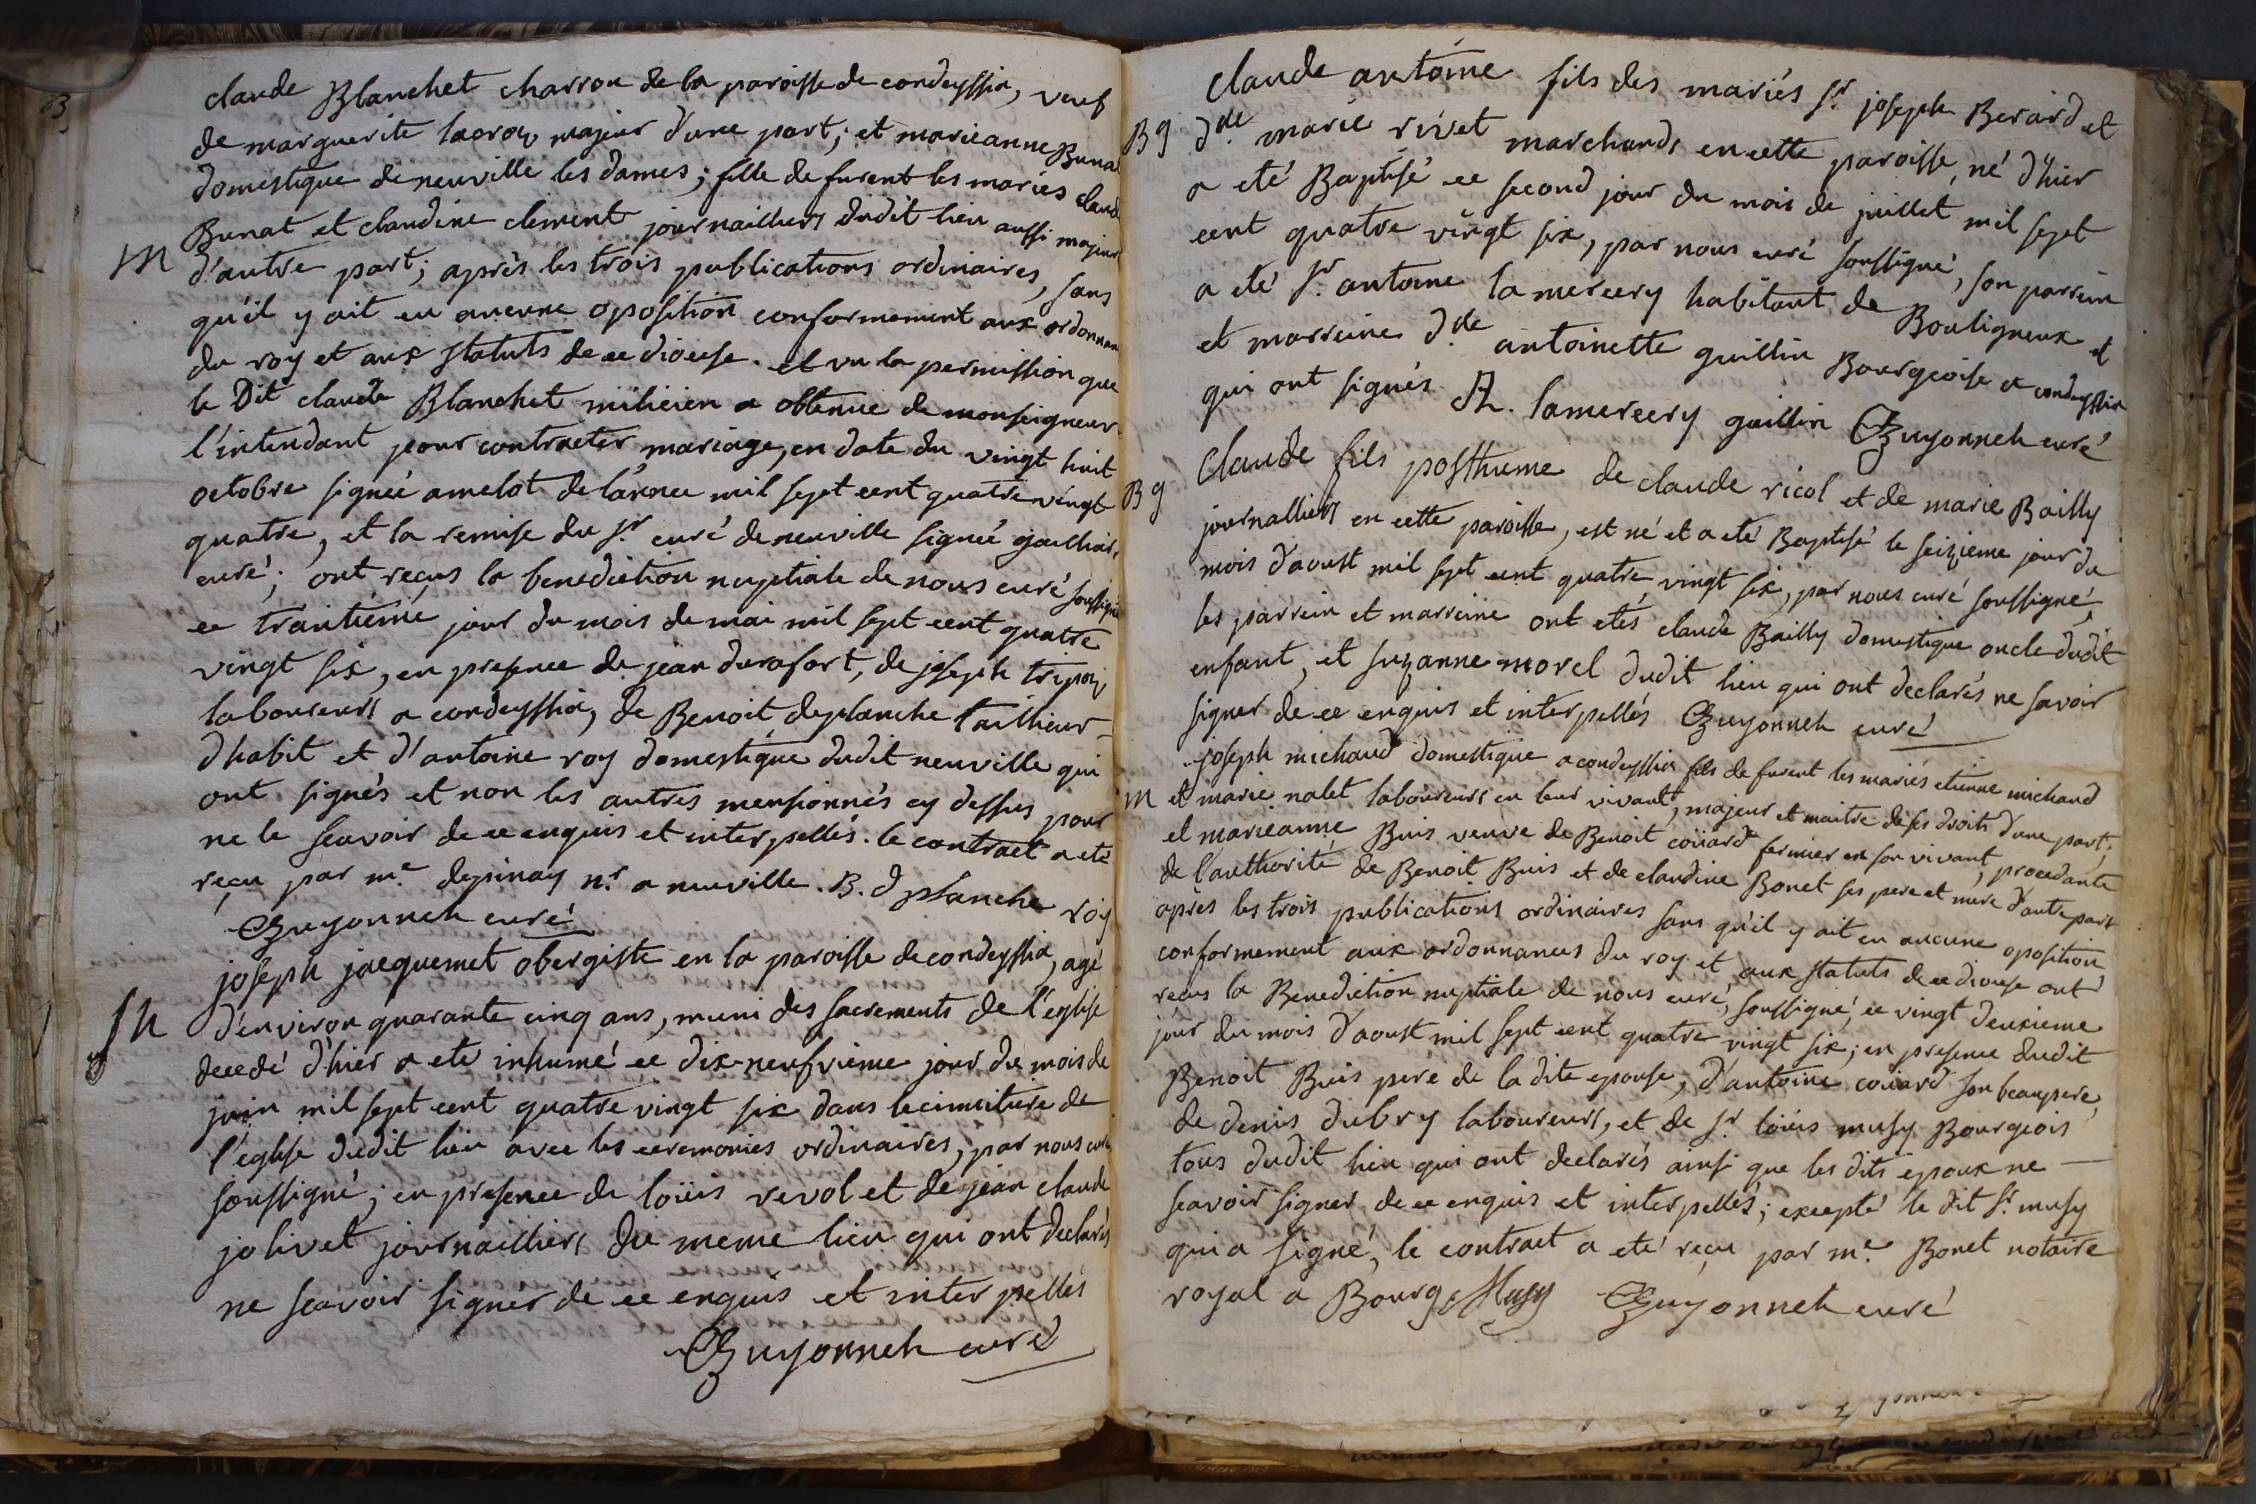 claude Blanchet charron de la paroisse de condeyssia, veuf
de marguerite lacroix majeur d'une part; et marieanne Bunat
domestique de neuville les dames; fille de furent les mariés claude
Bunat et claudine clement journailliers dudit lieu aussi majeur
m d'autre part; après les trois publications ordinaires, sans
qu'il y ait eu aucune oposition conformement aux ordonnan
du roy et aux statuts de ce diocese. et vu la permission que
le Dit claude Blanchet milicien a obtenue de monseigneur
l'intendant pour contracter mariage, en date du vingt huit
octobre signée amelot de l'année mil sept cent quatre vingt
quatre, et la remise du sr. curé de neuville signée
curé; ont reçus la benediction nuptiale de nous curé soussigné
ce traintieme jour du mois de mai mil sept cent quatre
vingt six, en presence de jean durafort, de joseph
laboureurs a condeyssia, de Benoit deplanche taillieur
d'habit et d'antoine roy domestique dudit neuville qui
ont signés et non les autres mensionnés cy dessus pour
ne le scavoir de ce enquis et interpellés. le contract a eté
reçu par me. depinay nr. a neuville. B. dplanche roy
Guyonneh curé
joseph jacquemet obergiste en la paroisse de condeyssia, agé
Sh d'environ quarante cinq ans, muni des sacrements de l'eglise
decedé d'hier a eté inhumé ce dix-neufvieme jour du mois de
juin mil sept cent quatre vingt six dans le cimitiere de
l'eglise dudit lieu avec les ceremonies ordinaires, par nous curé
soussigné; en presence de loüis revol et de jean claude
jolivet journailliers du meme lieu qui ont declarés
ne scavoir signer de ce enquis et interpellés
Guyonneh curé
claude antoine fils des mariés sr. joseph Berard et
Bg dlle marie rivet marchands en cette paroisse, né d'hier
a eté Baptisé ce second jour du mois de juillet mil sept
cent quatre vingt six, par nous curé soussigné, son parrein
a eté sr. antoine lamercery habitant de Bouligneux et
et marreine dlle antoinette guillin Bourgeoise a condeyssia
qui ont signés A. lamercery guillin Guyonneh curé
Bg Claude fils posthume de claude ricol et de marie Bailly
journalliers en cette paroisse, est né et a eté Baptisé le seizieme jour du
mois d'aoust mil sept cent quatre vingt six, par nous curé soussigné,
les parrein et marreine ont etés claude Bailly domestique oncle dudit
enfant, et suzanne morel dudit lieu qui ont declarés ne savoir
signer de ce enquis et interpellés Guyonneh curé
joseph michaud domestique a condeyssia fils de furent les mariés etienne michaud
m et marie nalet laboureurs en leur vivant, majeur et maitre de ses droits d'une part;
et marieanne Buis veuve de Benoit coüard fermier en son vivant, procedante
de l'authorité de Benoit Buis et de claudine Bonet ses pere et mere d'autre part
après les trois publications ordinaires sans qu'il y ait eu aucune oposition
conformement aux ordonnances du roy et aux statuts de ce diocese ont
reçus la Benediction nuptiale de nous curé, soussigné, ce vingt deuxieme
jour du mois d'aoust mil sept cent quatre vingt six; en presence dudit
Benoit Buis pere de la dite epouse, d'antoine coüard son beaupere,
de denis dubry laboureurs, et de sr. loüis musy Bourgeois
tous dudit lieu qui ont declarés ainsi que les dits epoux ne
scavoir signer de ce enquis et interpellés; excepté le dit sr. musy
qui a signé, le contract a eté reçu par me. Bonet notaire
royal a Bourg. Musy Guyonneh curé